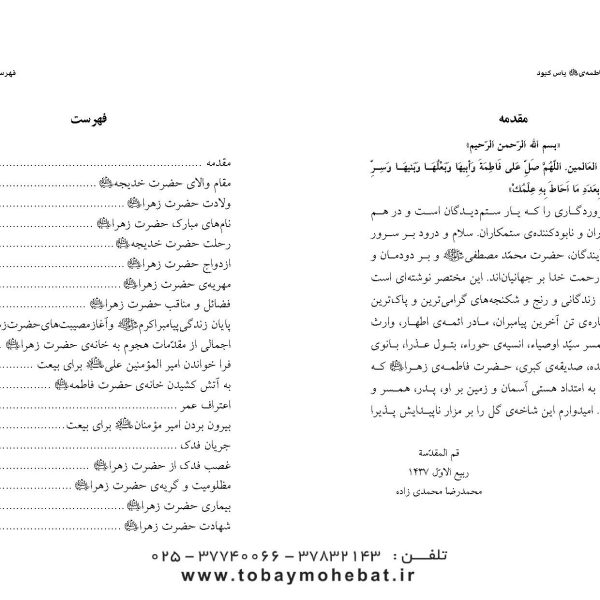 فاطمه‌ی ﷥ یاس کبود
مقدمه
«بسم الله الرّحمن الرّحیم»
العالمین. اللّهمَّ صَلِّ عَلی فَاطِمَةَ وَأبِیهَا وَبَعْلُهَا وَبَنیهَا وَسِرِّ
بِعَدَدِ مَا اَحَاطَ بِهِ عِلْمُكَ»
روردگاری را که یار ستم‌دیدگان است و در هم
ران و نابودکننده‌ی ستمکاران. سلام و درود بر سرور
ایندگان، حضرت محمّد مصطفیﷺ و بر دودمان و
رحمت خدا بر جهانیان‌اند. این مختصر نوشته‌ای است
زندگانی و رنج و شکنجه‌های گرامی‌ترین و پاک‌ترین
اره‌ی تن آخرین پیامبران، مادر ائمه‌ی اطهار، وارث
مسر سیّد اوصیاء، انسیه‌ی حوراء، بتول عذرا، بانوی
ده، صدیقه‌ی کبری، حضرت فاطمه‌ی زهرا که
به امتداد هستی آسمان و زمین بر او، پدر، همسر و
. امیدوارم این شاخه‌ی گل را بر مزار ناپیدایش پذیرا
قم المقدّسة
ربیع الاوّل ۱۴۳۷
محمدرضا محمدی زاده
فهرس
فهرست
مقدمه
مقام والای حضرت خدیجه
ولادت حضرت زهرا
نام‌های مبارک حضرت زهرا
رحلت حضرت خدیجه
ازدواج حضرت زهرا
مهریه‌ی حضرت زهرا
فضائل و مناقب حضرت زهرا
پایان زندگی پیامبراکرمﷺ و آغاز مصیبت‌های حضرت‌زه
اجمالی از مقدّمات هجوم به خانه‌ی حضرت زهرا
فرا خواندن امیر المؤمنین علی برای بیعت
به آتش کشیدن خانه‌ی حضرت فاطمه
اعتراف عمر
بیرون بردن امیر مؤمنان برای بیعت
جریان فدک
غصب فدک از حضرت زهرا
مظلومیت و گریه‌ی حضرت زهرا
بیماری حضرت زهرا
شهادت حضرت زهرا
تلفـن : ۳۷۸۳۲۱۴۳ – ۳۷۷۴۰۰۶۶ – ۰۲۵
www.tobaymohebat.ir